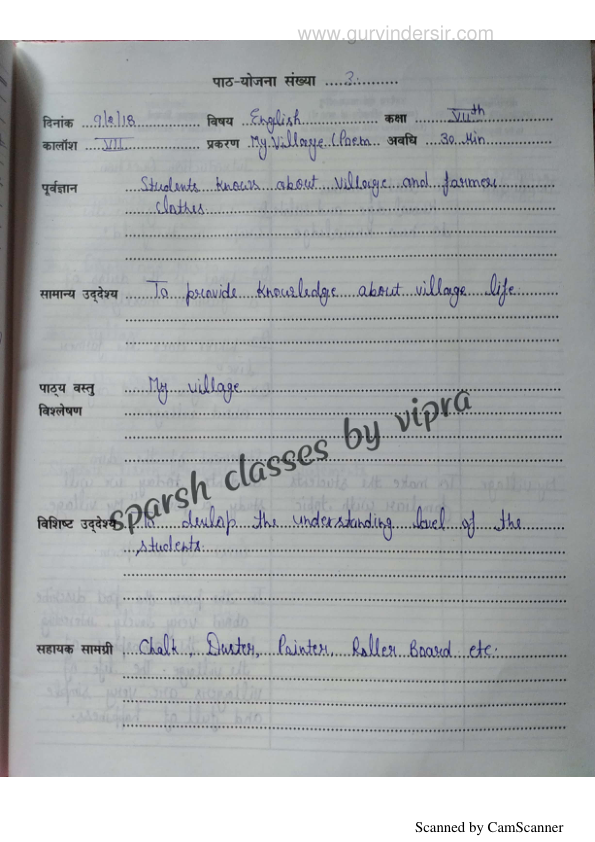 www.gurvindersir.com
पाठ-योजना संख्या ....3..........
दिनांक 9/8/18 विषय English कक्षा VIIth
कालाँश VII प्रकरण My Village (Poem अवधि 30 Min
पूर्वज्ञान Students knows about village and farmer
clothes
सामान्य उद्देश्य To provide knowledge about village life
पाठ्य वस्तु My village
विश्लेषण
sparsh classes by vipra
विशिष्ट उद्देश्य To devlop the understanding level of the
students
सहायक सामग्री Chalk, Duster, Painter, Roller Board etc.
Scanned by CamScanner